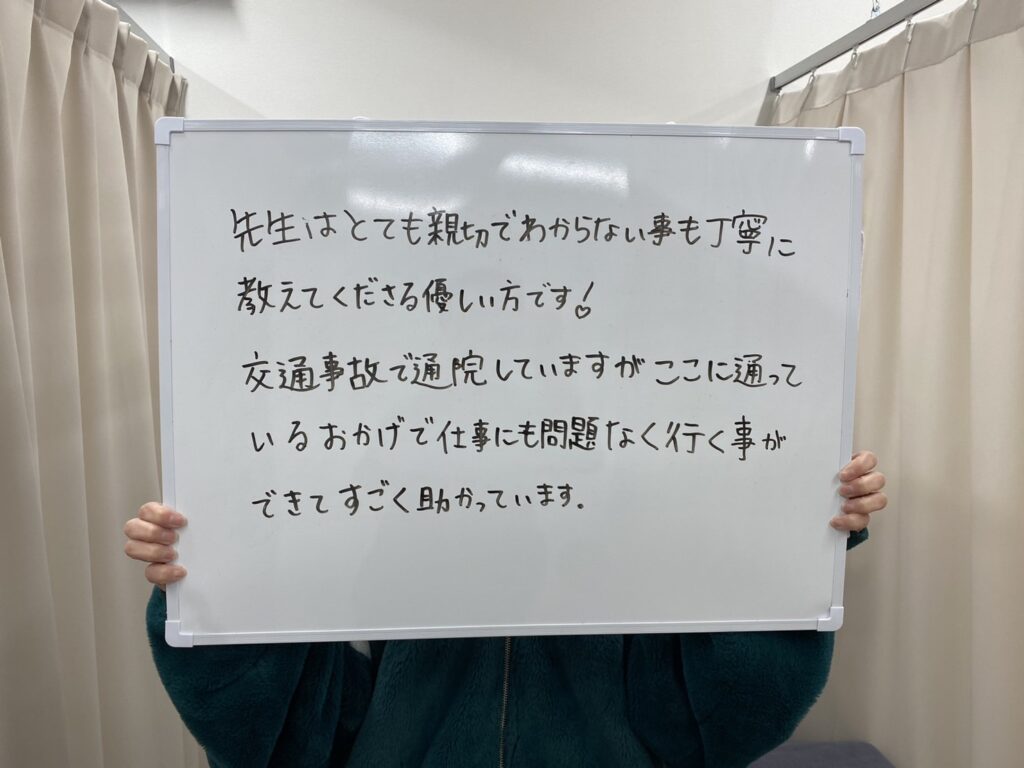 先生はとても親切でわからない事も丁寧に
教えてくださる優しい方です!
交通事故で通院していますがここに通って
いるおかげで仕事にも問題なく行く事が
できてすごく助かっています.